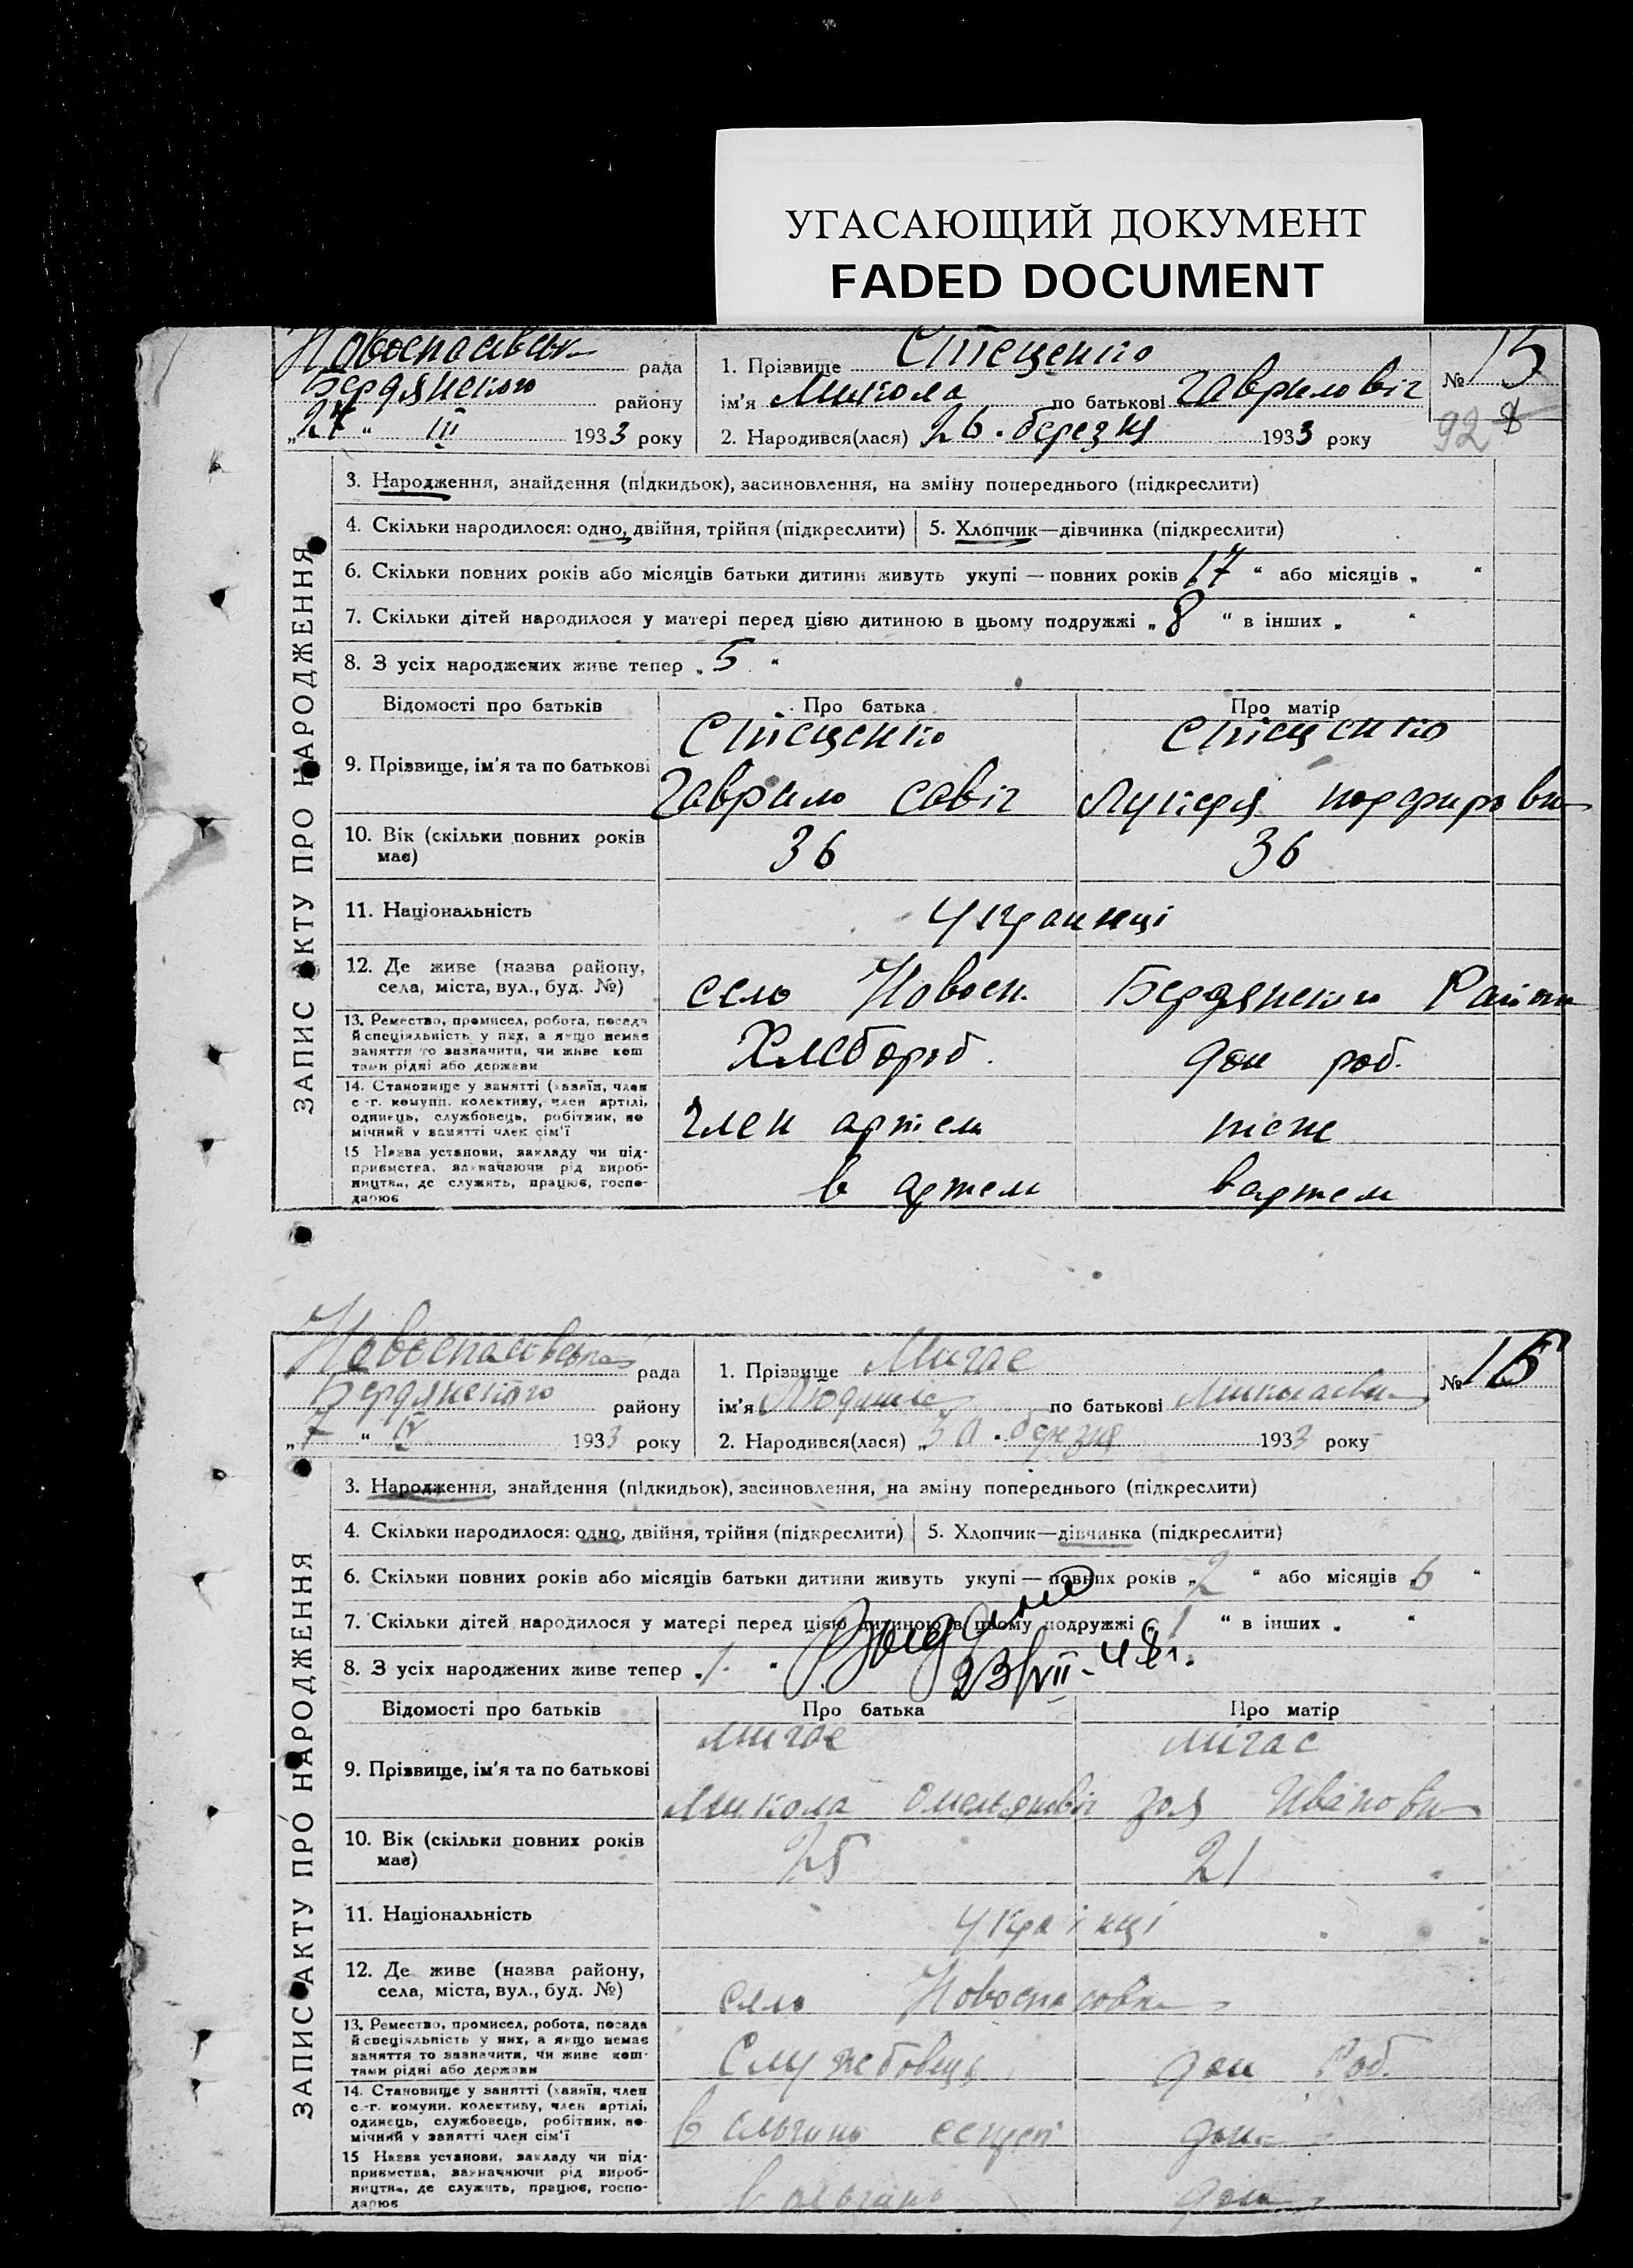 УГАСАЮЩИЙ ДОКУМЕНТ
FADED DOCUMENT
Новоспасівськ рада
Бердянського району
„27“ III 1933 року
1. Прізвище Стеценко
ім'я Микола по батькові Гаврилович
2. Народився(лася) 26 березня 1933 року
№ 15
92
ЗАПИС АКТУ ПРО НАРОДЖЕННЯ
3. Народження, знайдення (підкидьок), засиновлення, на зміну попереднього (підкреслити)
4. Скільки народилося: одно, двійня, трійня (підкреслити) 5. Хлопчик—дівчинка (підкреслити)
6. Скільки повних років або місяців батьки дитини живуть укупі — повних років „17“ або місяців „ “
7. Скільки дітей народилося у матері перед цією дитиною в цьому подружжі „8“ в інших „ “
8. З усіх народжених живе тепер „5“
Відомості про батьків Про батька Про матір
Стеценко Стеценко
9. Прізвище, ім'я та по батькові
Гаврило Савіч Лукеря Порфирови
10. Вік (скільки повних років має) 36 36
11. Національність Украинці
12. Де живе (назва району, села, міста, вул., буд. №) село Новосп. Бердянського Району
13. Ремество, промисел, робота, посада й спеціяльність у них, а якщо немає заняття то зазначити, чи живе кош тами рідні або держави Хлебороб. дом роб.
14. Становище у занятті (хазяїн, член с.-г. комуни, колективу, член артілі, одинець, службовець, робітник, по мічний у занятті член сім'ї член артели теж
15 Назва установи, закладу чи під- приємства, зазначаючи рід вироб- ництва, де служить, працює, госпо- дарює в артели в артели
Новоспасівська рада
Бердянського району
„7“ IV 1933 року
1. Прізвище Мигає
ім'я Людмила по батькові Миколаевн
2. Народився(лася) „30 березня 1933 року
№ 16
ЗАПИС АКТУ ПРО НАРОДЖЕННЯ
3. Народження, знайдення (підкидьок), засиновлення, на зміну попереднього (підкреслити)
4. Скільки народилося: одно, двійня, трійня (підкреслити) 5. Хлопчик—дівчинка (підкреслити)
6. Скільки повних років або місяців батьки дитини живуть укупі — повних років „2“ або місяців „6“
7. Скільки дітей народилося у матері перед цією дитиною в цьому подружжі „1“ в інших „ “
8. З усіх народжених живе тепер „1“
23/VII-48г.
Відомості про батьків Про батька Про матір
Мигає Мігає
9. Прізвище, ім'я та по батькові
Микола Омельянович Зоя Иванови
10. Вік (скільки повних років має) 25 21
11. Національність Українці
12. Де живе (назва району, села, міста, вул., буд. №) село Новоспасовка
13. Ремество, промисел, робота, посада й спеціяльність у них, а якщо немає заняття то зазначити, чи живе кош- тами рідні або держави Службовець дом Роб.
14. Становище у занятті (хазяїн, член с.-г. комуни, колективу, член артілі, одинець, службовець, робітник, по- мічний у занятті член сім'ї в дом
15 Назва установи, закладу чи під- приємства, зазначаючи рід вироб- ництва, де служить, працює, госпо- дарює в дом